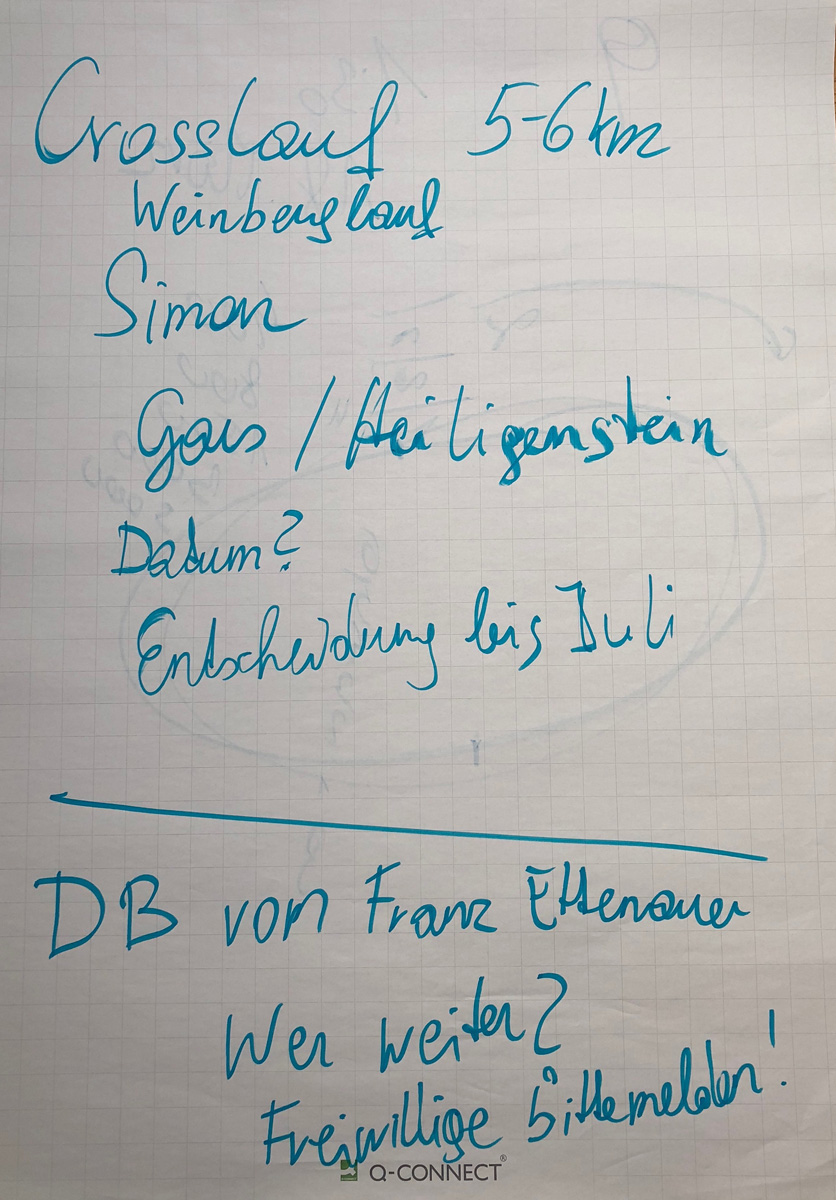 Crosslauf 5-6 km
Weinberglauf
Simon
Gais / Heiligenstein
Datum?
Entscheidung bis Juli
DB von Franz Ettenauer
Wer weiter?
Freiwillige bitte melden!
Q-CONNECT®